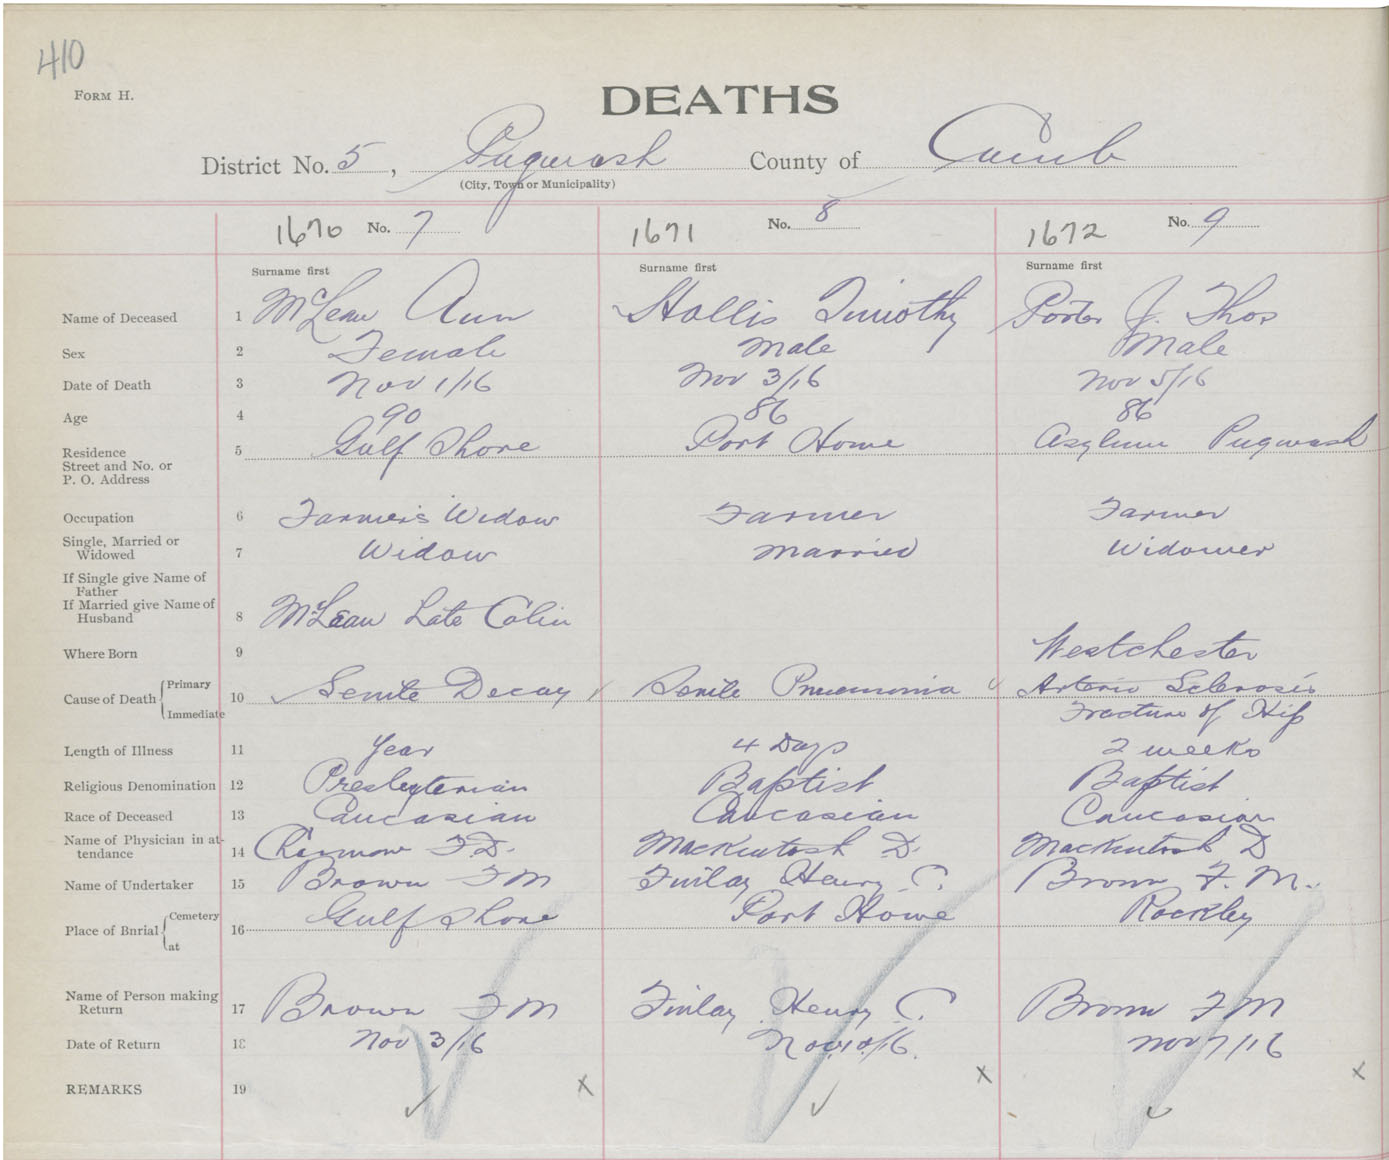 410
FORM H.
DEATHS
District No. 5, Pugwash County of Cumb
(City, Town or Municipality)
1670 No. 7 1671 No. 8 1672 No. 9
Surname first Surname first Surname first
Name of Deceased 1 McLean Ann Hollis Timothy Porter J. Thos
Sex 2 Female Male Male
Date of Death 3 Nov 1/16 Nov 3/16 Nov 5/16
Age 4 90 86 86
Residence
Street and No. or
P. O. Address 5 Gulf Shore Port Howe Asylum Pugwash
Occupation 6 Farmer's Widow Farmer Farmer
Single, Married or
Widowed 7 Widow Married Widower
If Single give Name of
Father
If Married give Name of
Husband 8 McLean Late Colin
Where Born 9 Westchester
Cause of Death Primary 10 Senile Decay Senile Pneumonia Arterio Sclerosis
Immediate Fracture of Hip
Length of Illness 11 Year 4 Days 2 weeks
Religious Denomination 12 Presbyterian Baptist Baptist
Race of Deceased 13 Caucasian Caucasian Caucasian
Name of Physician in at-
tendance 14 F.D. Mackintosh D. Mackintosh D
Name of Undertaker 15 Brown F M Finlay Henry C. Brown F. M.
Place of Burial Cemetery 16 Gulf Shore Port Howe Rockley
at
Name of Person making
Return 17 Brown F M Finlay Henry C. Brown F M
Date of Return 18 Nov 3/16 Nov 10/16. Nov 7/16
REMARKS 19